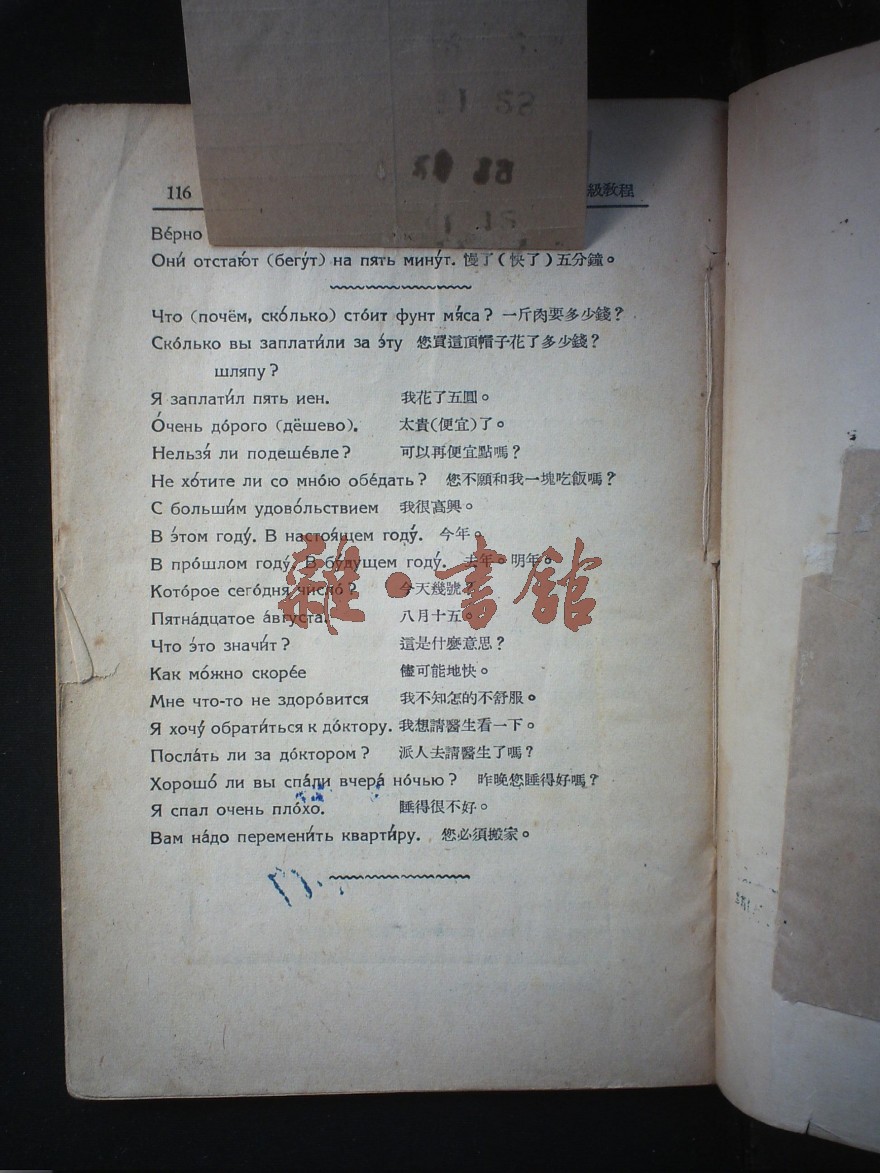 116 級教程
Ве́рно
Они́ отстаю́т (бегу́т) на пять мину́т. 慢了(快了)五分鐘。
Что (почём, ско́лько) сто́ит фунт мя́са? 一斤肉要多少錢?
Ско́лько вы заплати́ли за э́ту 您買這頂帽子花了多少錢?
шляпу?
Я заплати́л пять иен. 我花了五圓。
О́чень до́рого (дёшево). 太貴(便宜)了。
Нельзя́ ли подеше́вле? 可以再便宜點嗎?
Не хо́тите ли со мно́ю обе́дать? 您不願和我一塊吃飯嗎?
С больши́м удово́льствием 我很高興。
В э́том году́. В настоя́щем году́. 今年。
В про́шлом году́. В бу́дущем году́. 去年。明年。
Кото́рое сего́дня число́? 今天幾號?
Пятна́дцатое а́вгуста. 八月十五。
Что э́то значи́т? 這是什麼意思?
Как мо́жно скоре́е 儘可能地快。
Мне что-то не здоро́вится 我不知怎的不舒服。
Я хочу́ обрати́ться к до́ктору. 我想請醫生看一下。
Посла́ть ли за до́ктором? 派人去請醫生了嗎?
Хорошо́ ли вы спа́ли вчера́ но́чью? 昨晚您睡得好嗎?
Я спал очень пло́хо. 睡得很不好。
Вам на́до перемени́ть кварти́ру. 您必須搬家。
雜·書館